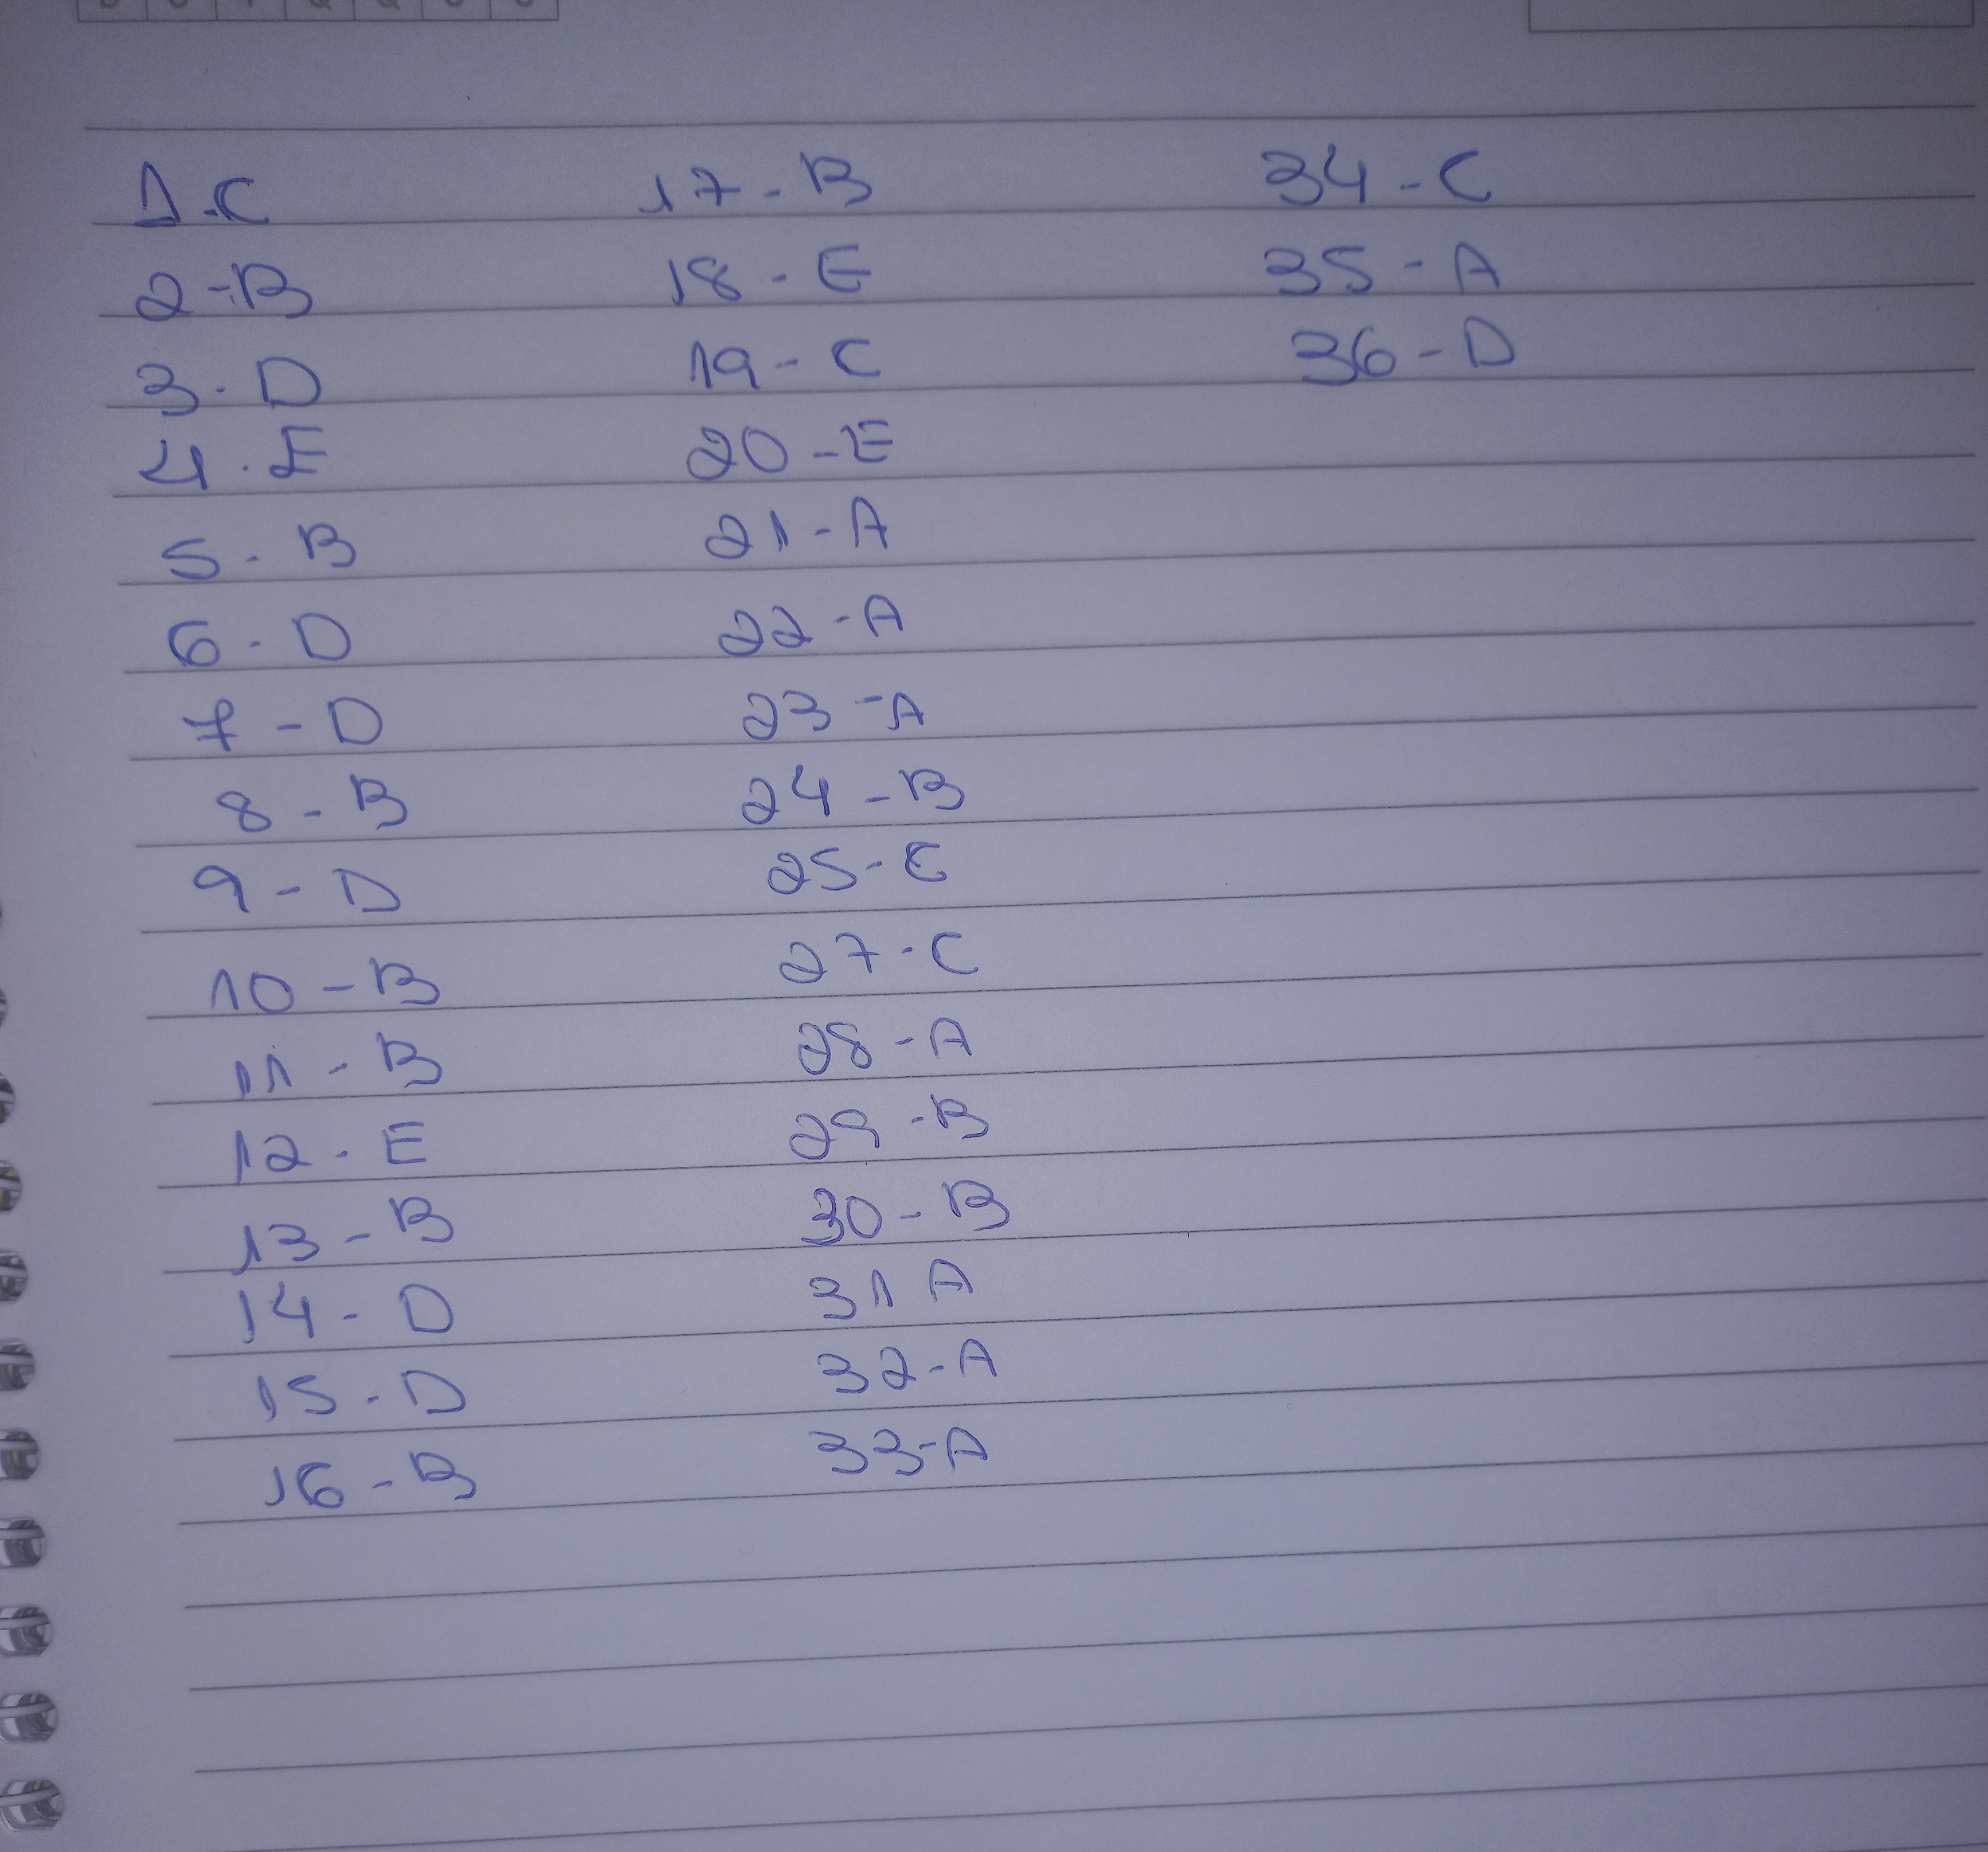 1-C
2-B
3-D
4-E
5-B
6-D
7-D
8-B
9-D
10-B
11-B
12-E
13-B
14-D
15-D
16-B
17-B
18-E
19-C
20-E
21-A
22-A
23-A
24-B
25-E
27-C
28-A
29-B
30-B
31 A
32-A
33-A
34-C
35-A
36-D